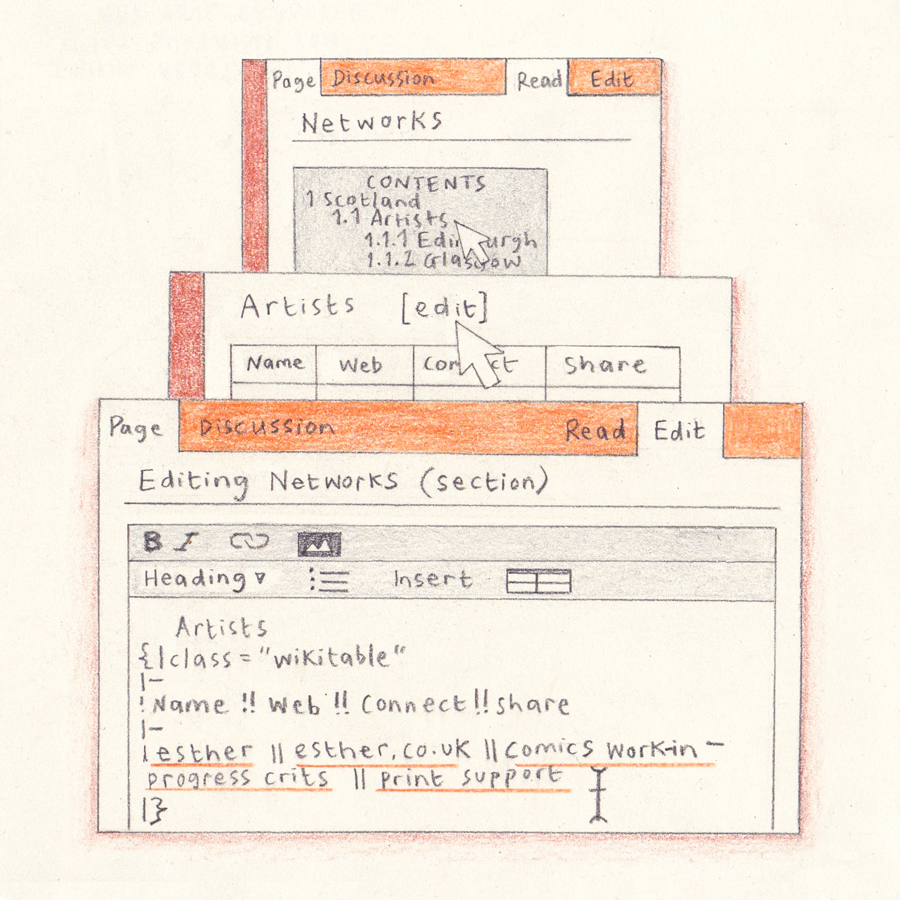 Page Discussion Read Edit
Networks
CONTENTS
1 Scotland
1.1 Artists
1.1.1 Edinburgh
1.1.2 Glasgow
Artists [edit]
Name Web Connect Share
Page Discussion Read Edit
Editing Networks (section)
B I
Heading Insert
Artists
{|class="wikitable"
|-
!Name !! Web !! Connect!!share
|-
|esther || esther.co.uk ||Comics work-in-
progress crits || print support
|}